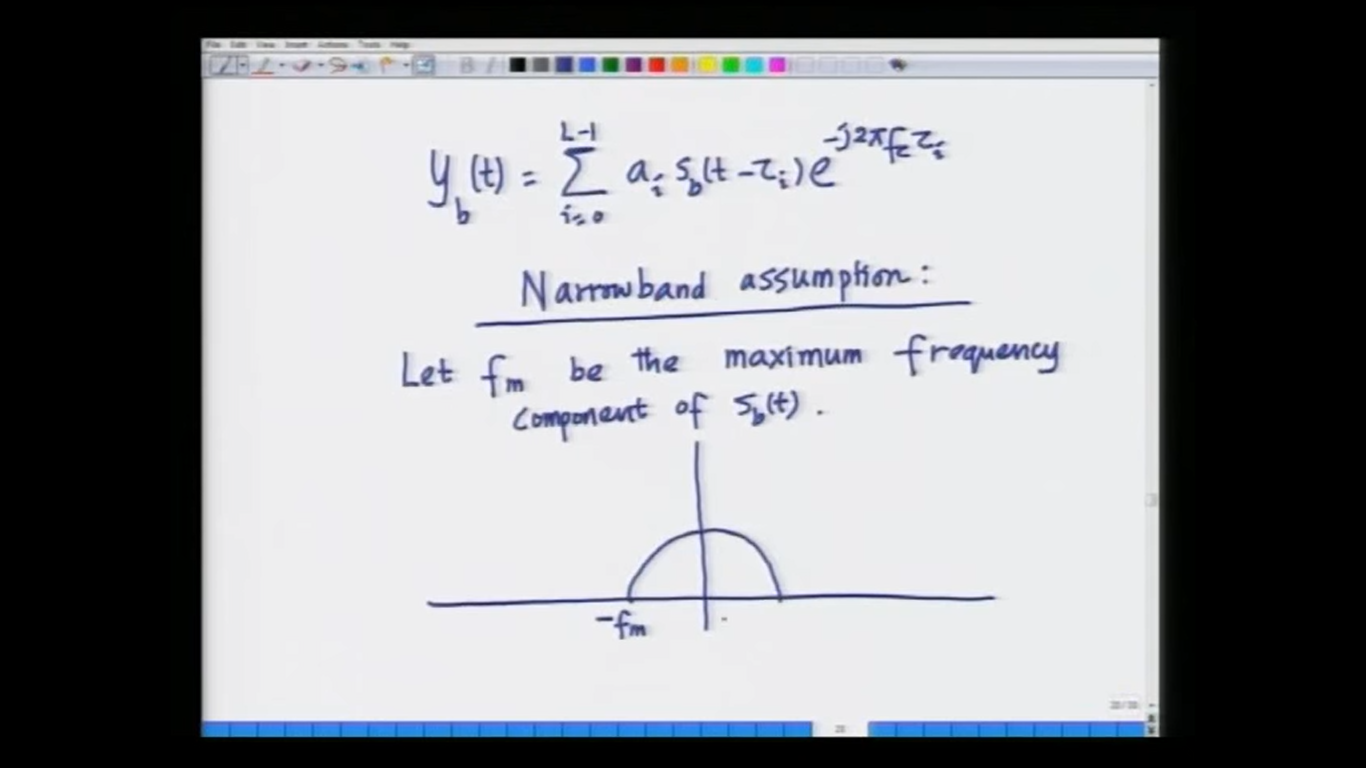 File Edit View Insert Actions Tools Help
B I
y_b(t) = Σ_{i=0}^{L-1} a_i s_b(t-τ_i) e^{-j2πf_cτ_i}
Narrowband assumption:
Let f_m be the maximum frequency
component of s_b(t).
-f_m